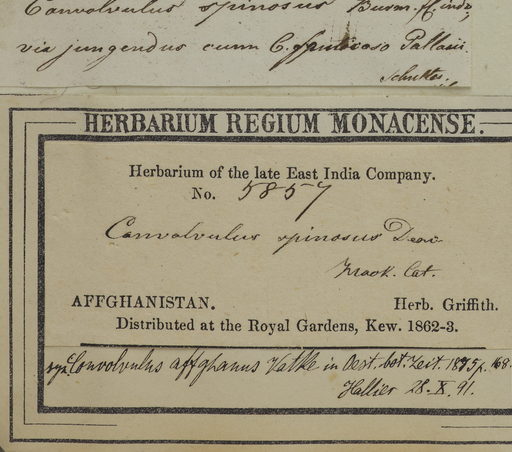 Convolvulus spinosus Burm. fl. ind.
vix jungendus cum C. fruticoso Pallasii
HERBARIUM REGIUM MONACENSE.
Herbarium of the late East India Company.
No. 5857
Convolvulus spinosus
Cat.
AFFGHANISTAN. Herb. Griffith.
Distributed at the Royal Gardens, Kew. 1862-3.
syn. Convolvulus affghanus Vatke in Oest. bot. Zeit. 1875 p. 168.
Hallier 28. X. 91.